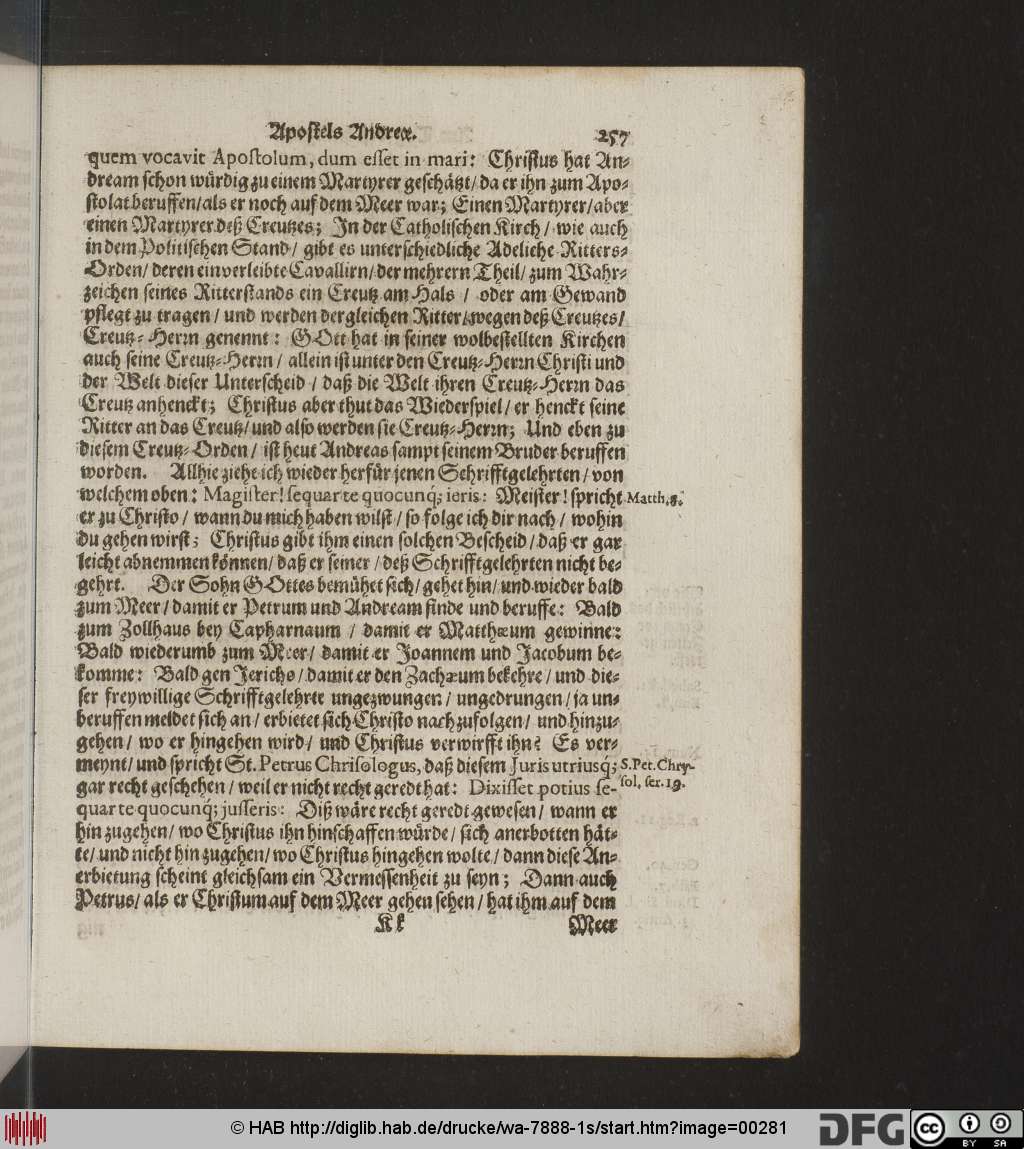 Apostels Andreæ. 257
quem vocavit Apostolum, dum esset in mari: Christus hat An-
dream schon würdig zu einem Martyrer geschätzt/ da er ihn zum Apo-
stolat beruffen/als er noch auf dem Meer war; Einen Martyrer/aber
einen Martyrer deß Creutzes; In der Catholischen Kirch/ wie auch
in dem Politischen Stand/ gibt es unterschiedliche Adeliche Ritters-
Orden/ deren einverleibte Cavallirn/ der mehrern Theil/ zum Wahr-
zeichen seines Ritterstands ein Creutz am Hals / oder am Gewand
pflegt zu tragen/ und werden dergleichen Ritter/ wegen deß Creutzes/
Creutz-Herrn genennt: GOtt hat in seiner wolbestellten Kirchen
auch seine Creutz-Herrn/ allein ist unter den Creutz-Herrn Christi und
der Welt dieser Unterscheid/ daß die Welt ihren Creutz-Herrn das
Creutz anhenckt; Christus aber thut das Wiederspiel/ er henckt seine
Ritter an das Creutz/ und also werden sie Creutz-Herrn; Und eben zu
diesem Creutz-Orden/ ist heut Andreas sampt seinem Bruder beruffen
worden. Allhie zieht ich wieder herfür jenen Schrifftgelehrten/ von
welchem oben: Magister! sequar te quocunq; ieris: Meister! spricht Matth. 8.
er zu Christo/ wann du mich haben wilst/ so folge ich dir nach/ wohin
du gehen wirst; Christus gibt ihm einen solchen Bescheid/ daß er gar
leicht abnemmen können/ daß er seiner/ deß Schrifftgelehrten nicht be-
gehrt. Der Sohn GOttes bemühet sich/ gehet hin/ und wieder bald
zum Meer/ damit er Petrum und Andream finde und beruffe: Bald
zum Zollhaus bey Capharnaum / damit er Matthæum gewinne:
Bald wiederumb zum Meer/ damit er Joannem und Jacobum be-
komme: Bald gen Jericho/ damit er den Zachæum bekehre/ und die-
ser freywillige Schrifftgelehrte ungezwungen/ ungedrungen/ ja un-
beruffen meldet sich an/ erbietet sich Christo nachzufolgen/ und hinzu-
gehen/ wo er hingehen wird/ und Christus verwirfft ihn? Es ver-
meynt/ und spricht St. Petrus Chrisologus, daß diesem Juris utriusq; S. Pet. Chry-
gar recht geschehen/ weil er nicht recht geredt hat: Dixisset potius se- sol. ser. 19.
quar te quocunq; jusseris: Diß wäre recht geredt gewesen/ wann er
hin zugehen/ wo Christus ihn hinschaffen würde/ sich anerbotten hät-
te/ und nicht hin zugehen/ wo Christus hingehen wolte/ dann diese An-
erbietung scheint gleichsam ein Vermessenheit zu seyn; Dann auch
Petrus/ als er Christum auf dem Meer gehen sehen/ hat ihm auf dem
Kk Meer
© HAB http://diglib.hab.de/drucke/wa-7888-1s/start.htm?image=00281
DFG
cc BY SA